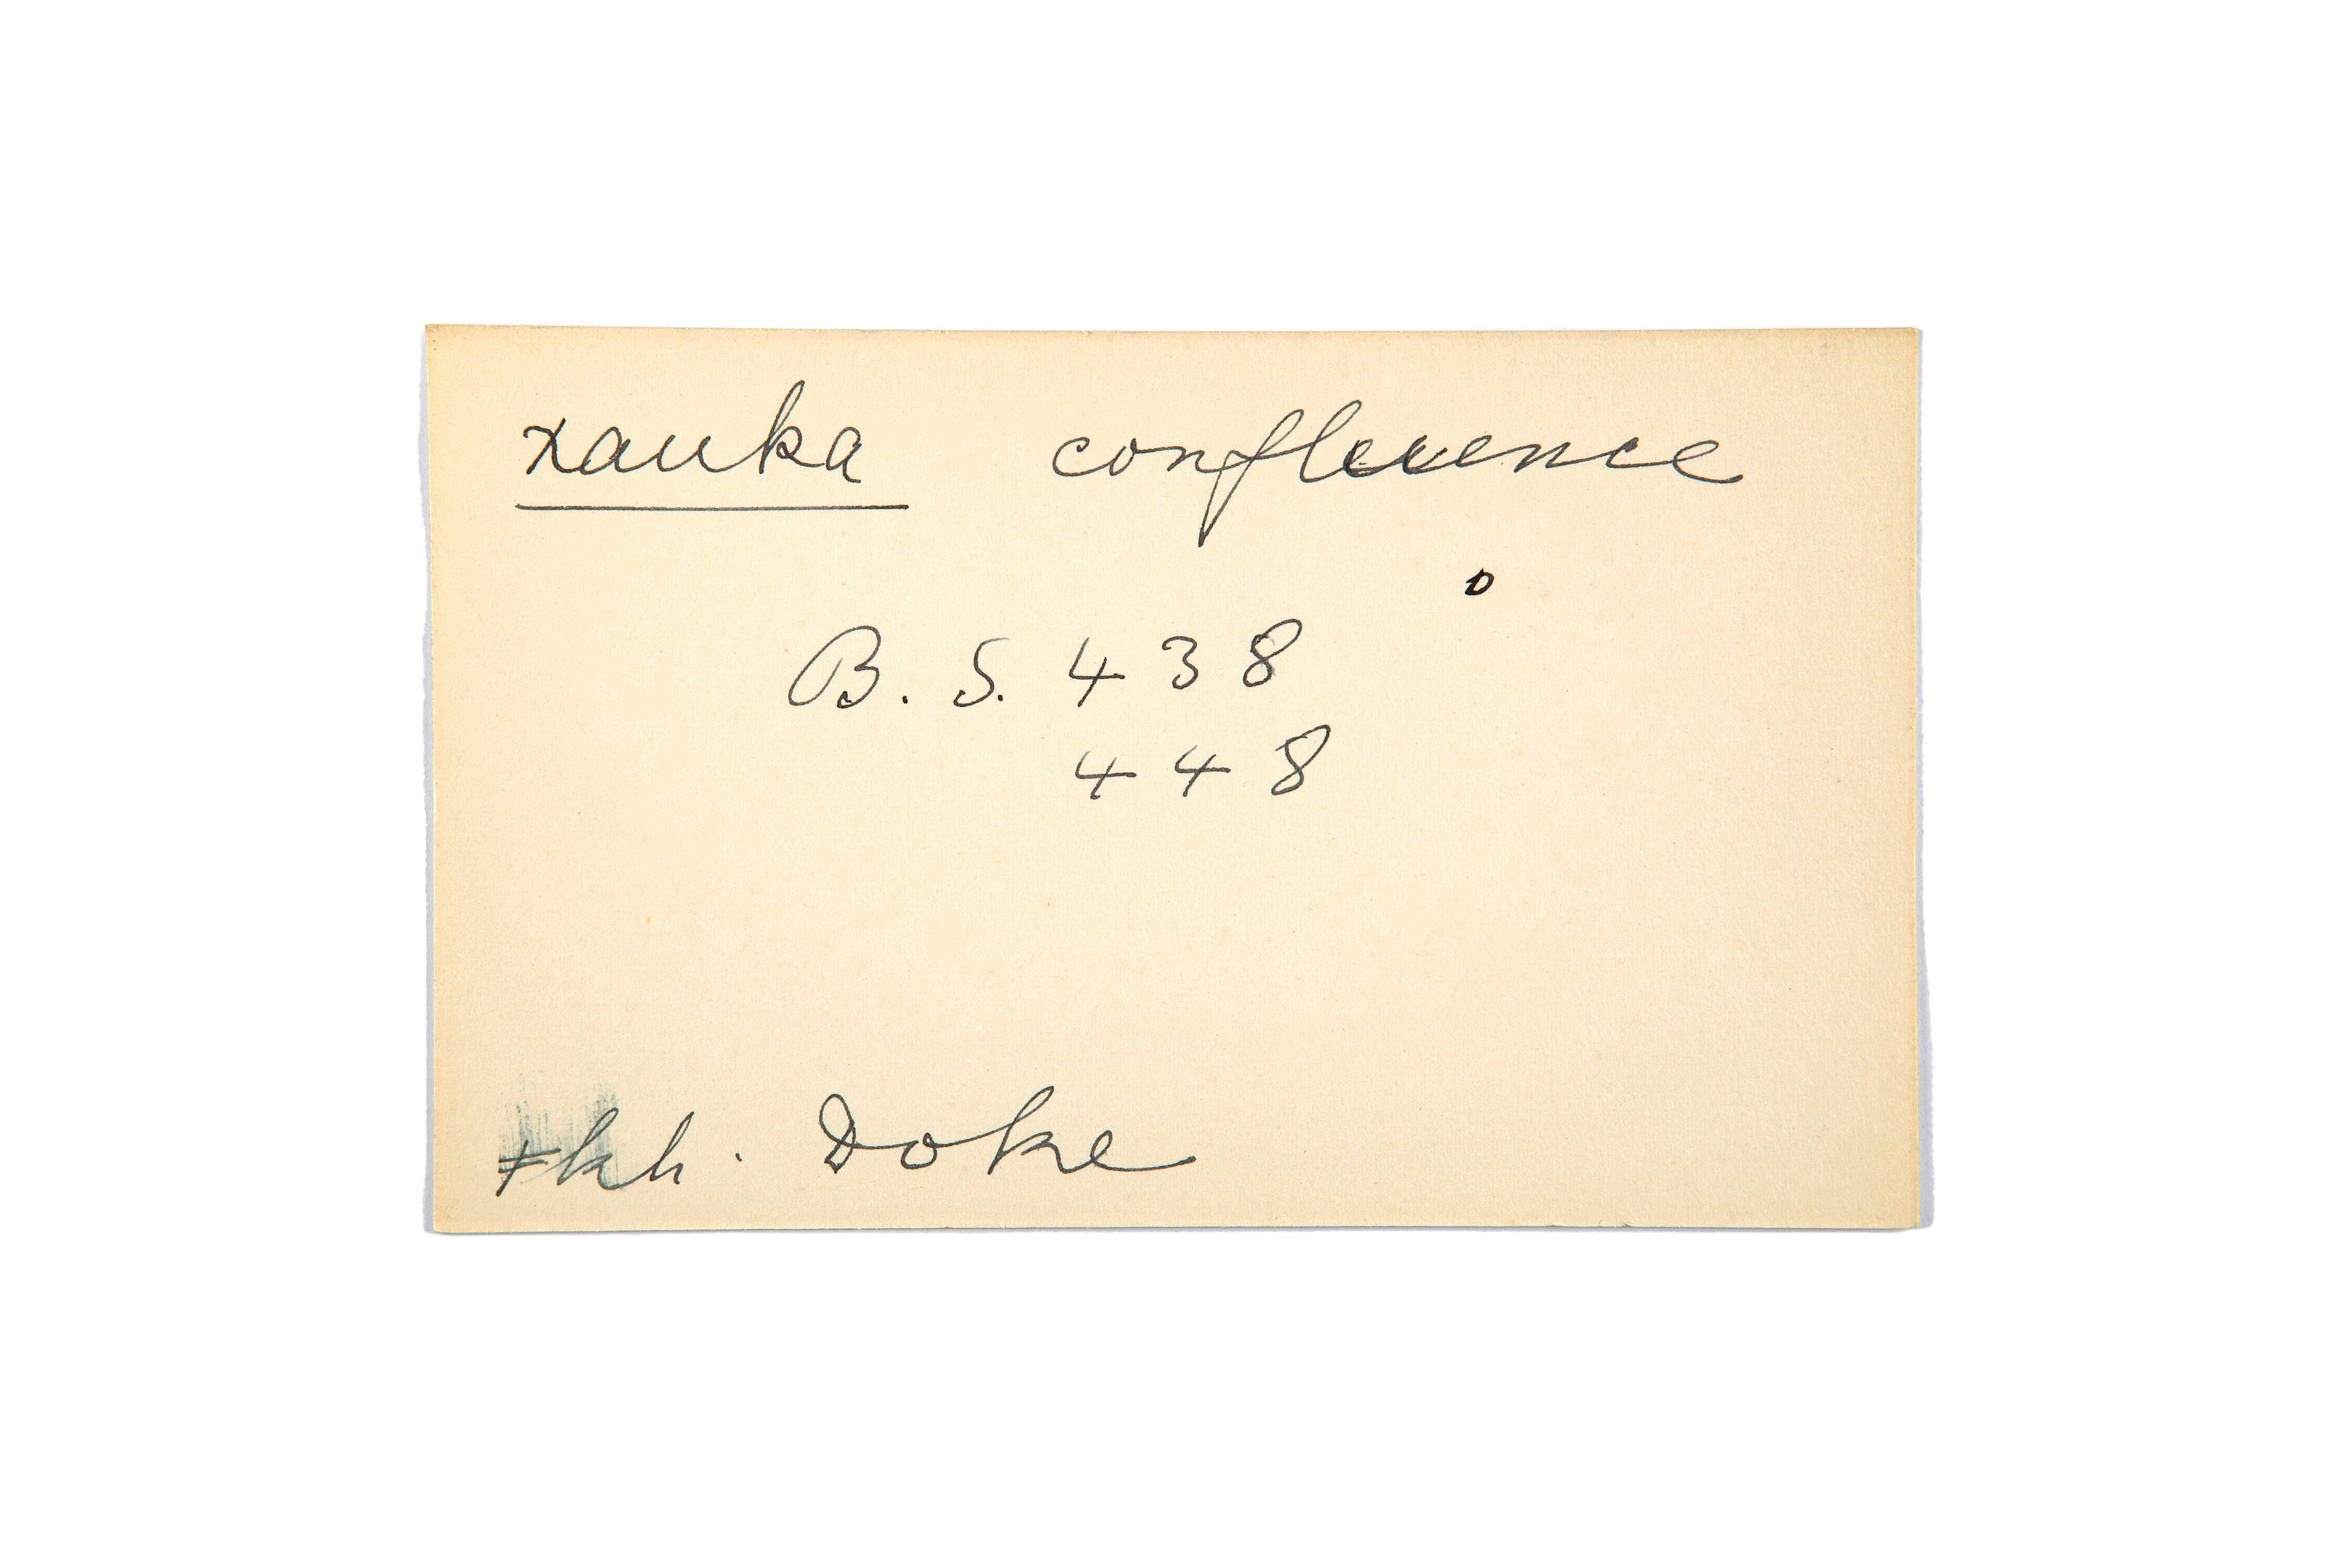 xauka confluence
B. S. 438
448
ǂkh. Doke